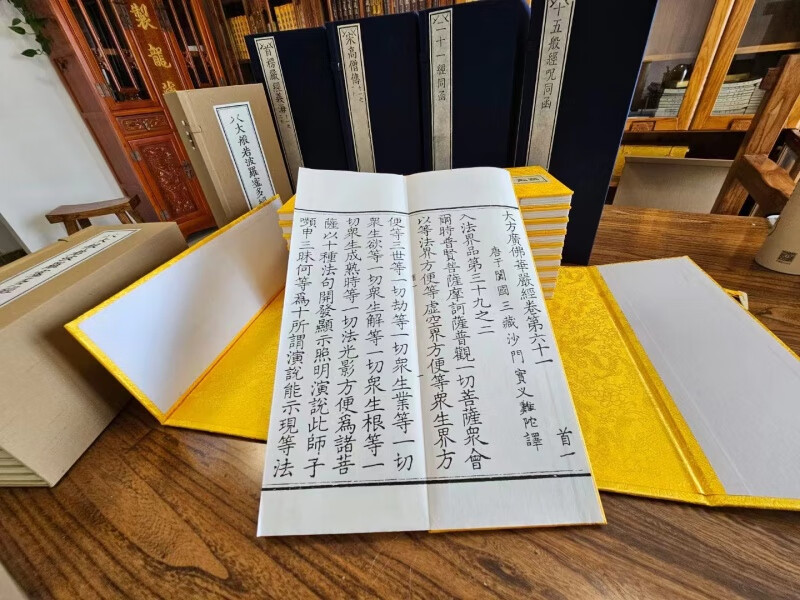 製龍藏
大般若波羅蜜多
首楞嚴經義
宋高僧傳
一十一經同函
五般經呪同函
大方廣佛華嚴經卷第六十一 首一
唐于闐國三藏沙門實叉難陀譯
入法界品第三十九之二
爾時普賢菩薩摩訶薩普觀一切菩薩衆會
以等法界方便等虛空界方便等衆生界方
便等三世等一切劫等一切衆生業等一切
衆生欲等一切衆生解等一切衆生根等一
切衆生成熟時等一切法光影方便爲諸菩
薩以十種法句開發顯示照明演說此師子
嚬申三昧何等爲十所謂演說能示現等法